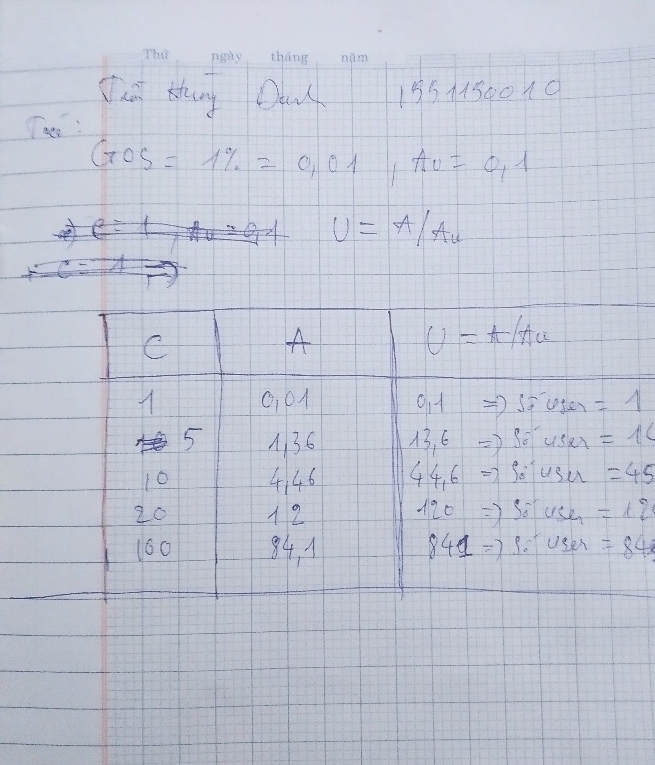 Thứ ngày tháng năm
Hùng Danh 1551150010
GOS = 1% = 0,01 , Au = 0,1
=) C = 1 , Au = 0,1 U = A/Au
C = 1 =)
C A U = A/Au
1 0,01 0,1 =) Số user = 1
5 1,36 13,6 =) Số user = 14
10 4,46 44,6 =) Số user = 45
20 12 120 =) Số user = 120
100 84,1 841 =) Số user = 841